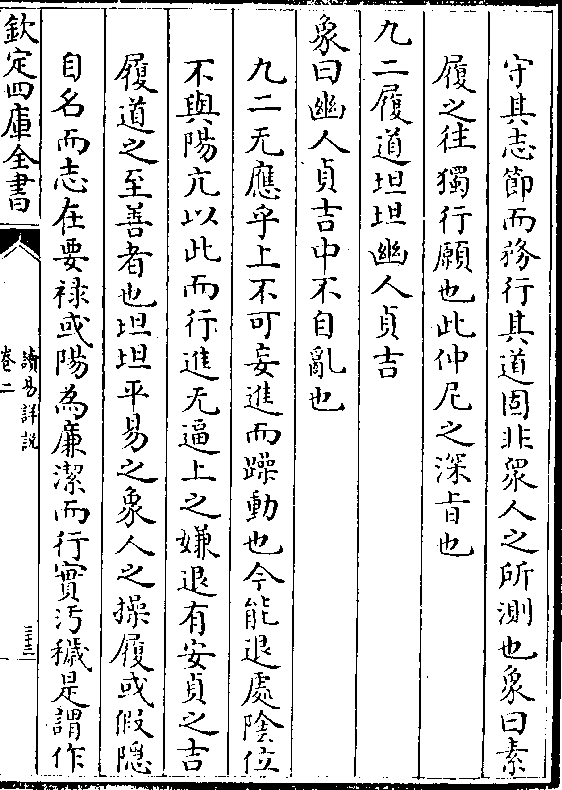 守其志節而務行其道固非衆人之所測也象曰素
履之往獨行願也此仲尼之深㫖也
九二履道坦坦幽人貞吉
象曰幽人貞吉中不自亂也
九二无應乎上不可妄進而躁動也今能退處陰位
不與陽亢以此而行進无逼上之嫌退有安貞之吉
履道之至善者也坦坦平易之象人之操履或假隱
自名而志在要禄或陽為廉潔而行實汚穢是謂作
欽定四庫全書
讀易詳說
卷二
三十三